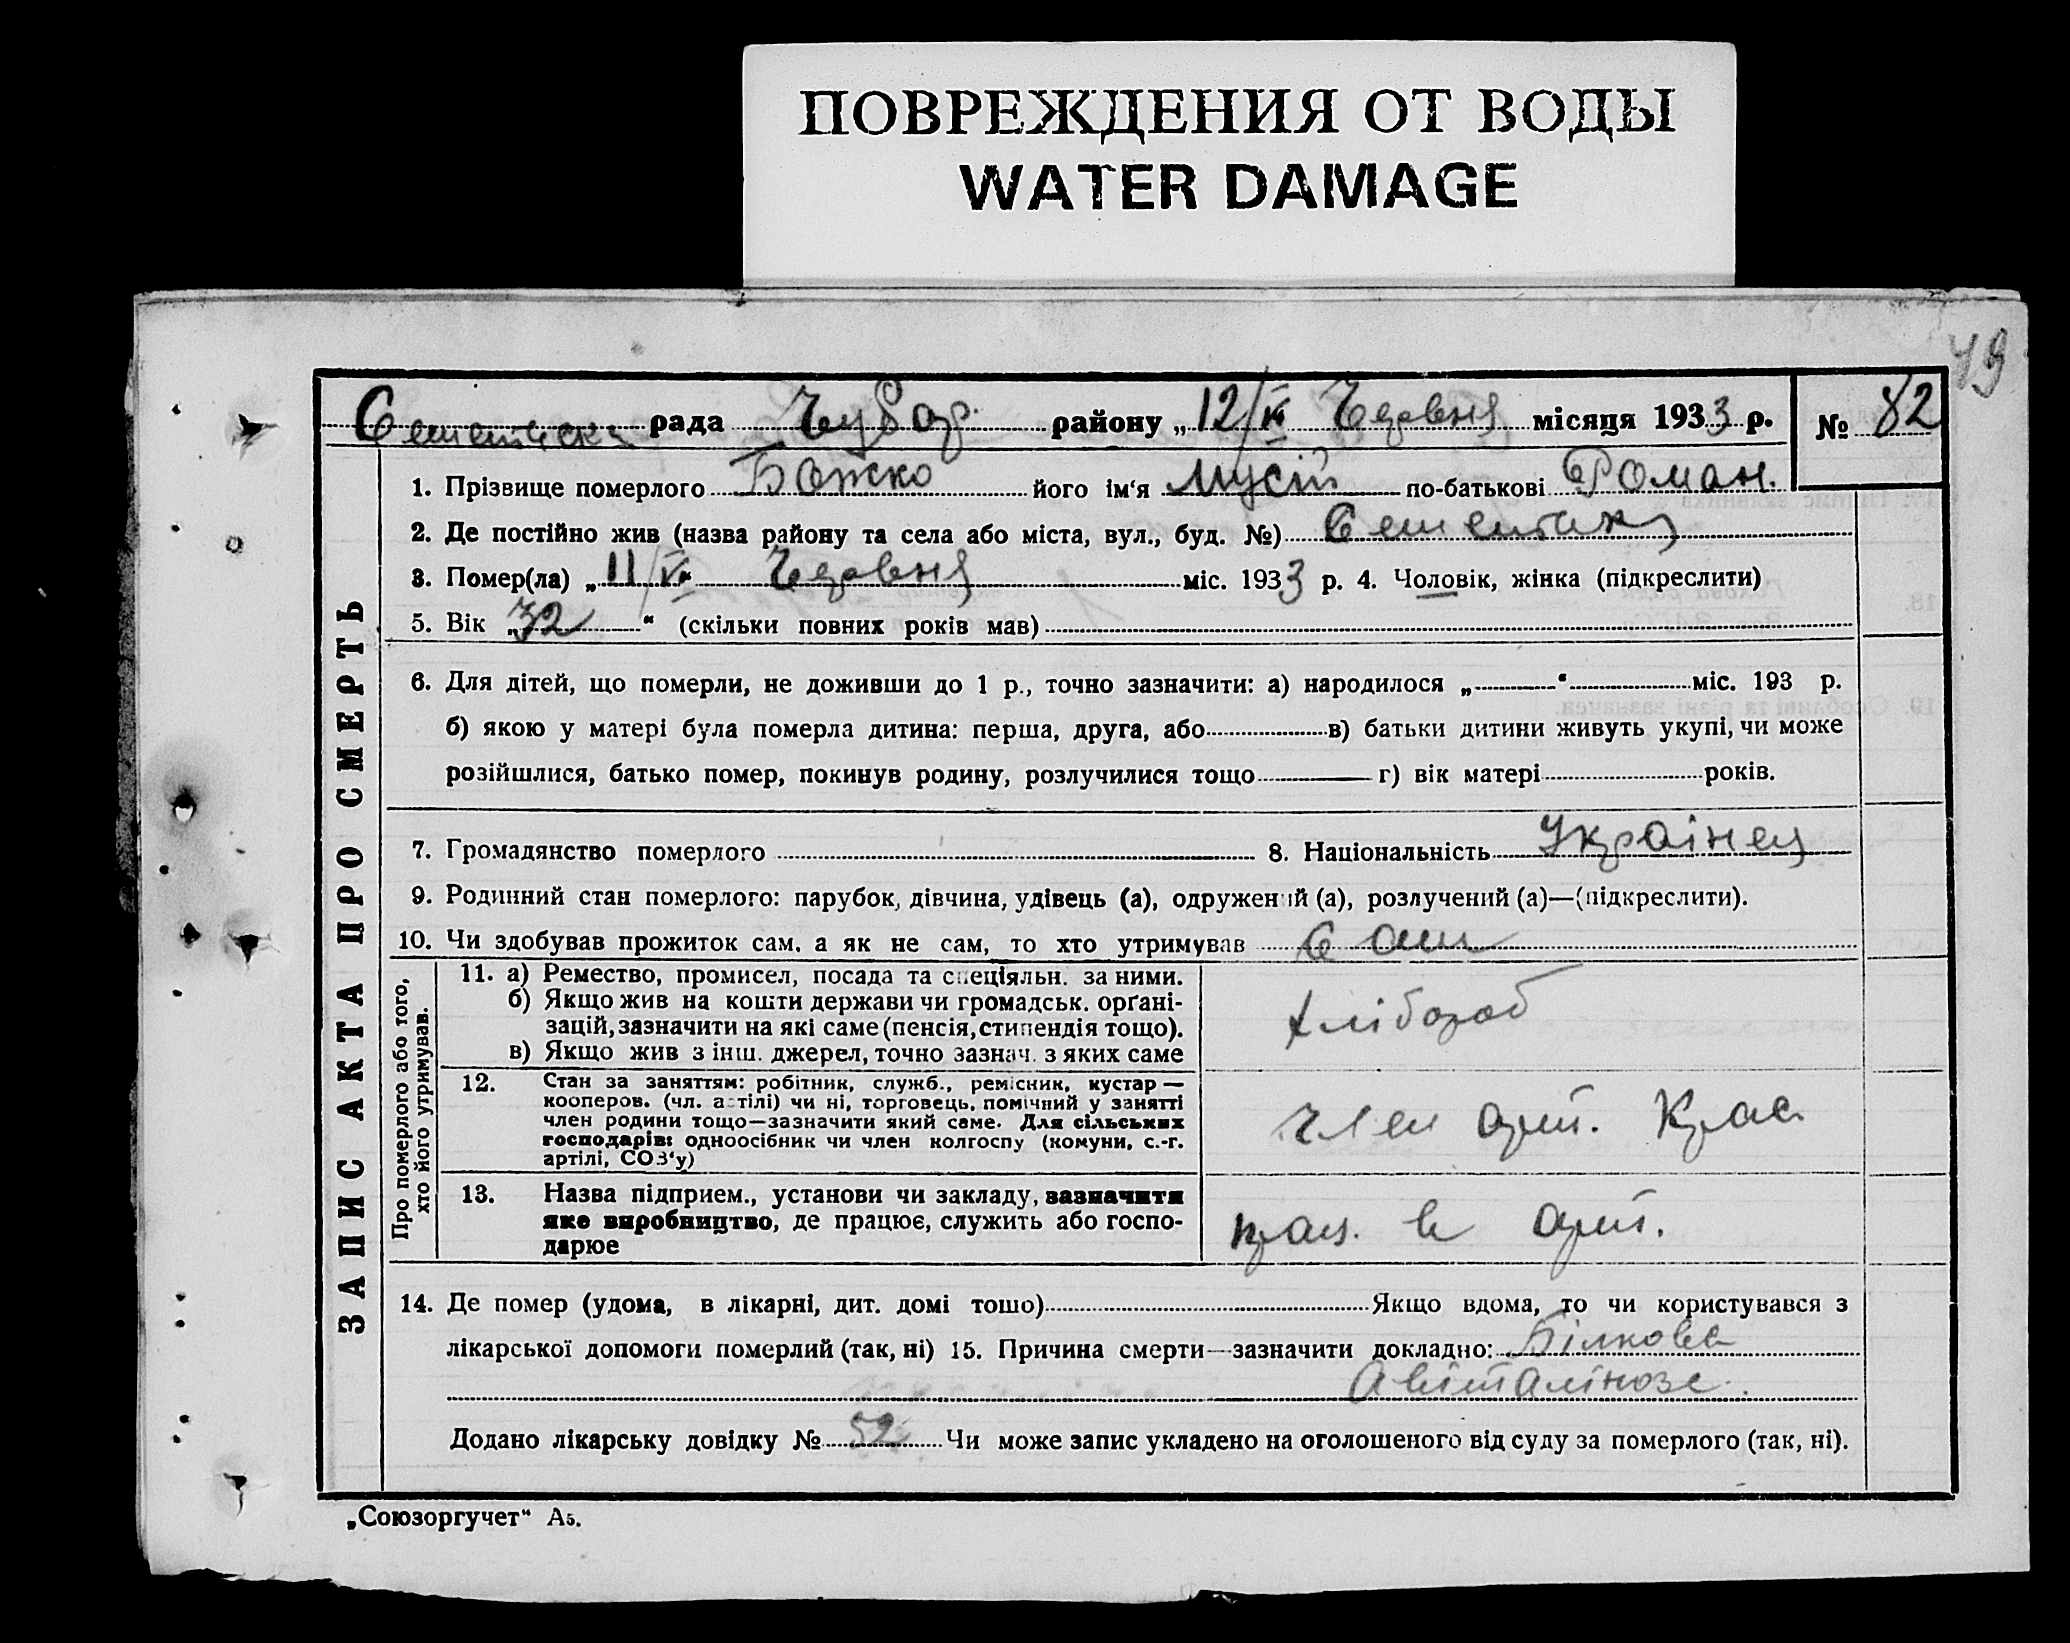 ПОВРЕЖДЕНИЯ ОТ ВОДЫ
WATER DAMAGE
49
рада Чубар. району „12/VI Червня місяця 1933 р. № 82
1. Прізвище померлого Божко його ім'я Мусій по-батькові Роман.
2. Де постійно жив (назва району та села або міста, вул., буд. №)
3. Помер(ла) „11/VI Червня міс. 1933 р. 4. Чоловік, жінка (підкреслити)
5. Вік „32“ (скільки повних років мав)
6. Для дітей, що померли, не доживши до 1 р., точно зазначити: а) народилося „ “ міс. 193 р.
б) якою у матері була померла дитина: перша, друга, або в) батьки дитини живуть укупі, чи може
розійшлися, батько помер, покинув родину, розлучилися тощо г) вік матері років.
7. Громадянство померлого 8. Національність Українец
9. Родинний стан померлого: парубок, дівчина, удівець (а), одружений (а), розлучений (а)—(підкреслити).
10. Чи здобував прожиток сам, а як не сам, то хто утримував Сам
ЗАПИС АКТА ПРО СМЕРТЬ
Про померлого або того,
хто його утримував.
11. а) Ремество, промисел, посада та спеціяльн. за ними.
б) Якщо жив на кошти держави чи громадськ. орґані-
зацій, зазначити на які саме (пенсія, стипендія тощо).
в) Якщо жив з інш. джерел, точно зазнач. з яких саме
Хлібороб
12. Стан за заняттям: робітник, служб., ремісник, кустар —
кооперов. (чл. артілі) чи ні, торговець, помічний у занятті
член родини тощо—зазначити який саме. Для сільських
господарів: одноосібник чи член колгоспу (комуни, с.-г.
артілі, СОЗ'у)
Член арт. Крас.
13. Назва підприєм., установи чи закладу, зазначити
яке виробництво, де працює, служить або госпо-
дарює
прац. в арт.
14. Де помер (удома, в лікарні, дит. домі тошо) Якщо вдома, то чи користувався з
лікарської допомоги померлий (так, ні) 15. Причина смерти—зазначити докладно: Білкове
Авіталінозе.
Додано лікарську довідку № 52 Чи може запис укладено на оголошеного від суду за померлого (так, ні).
„Союзоргучет“ А5.